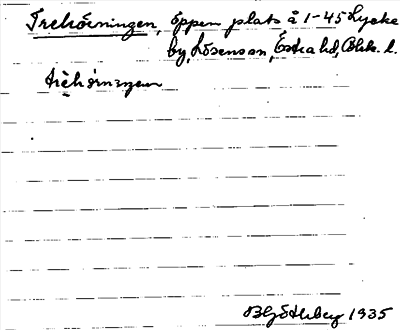 Trehörningen, öppen plats å 1-45 Lycke
by, Lösen sn, Östra hd, Blek. l.
trèhö́rnıŋen
B Götherberg 1935